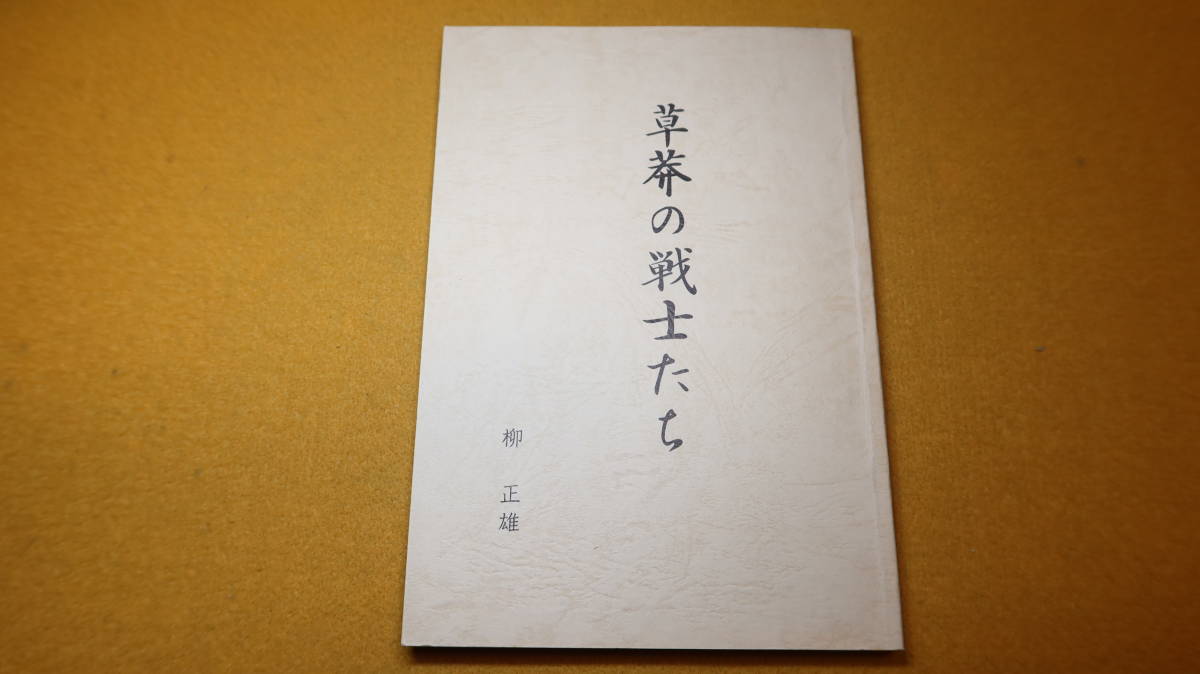 草莽の戦士たち
柳 正雄